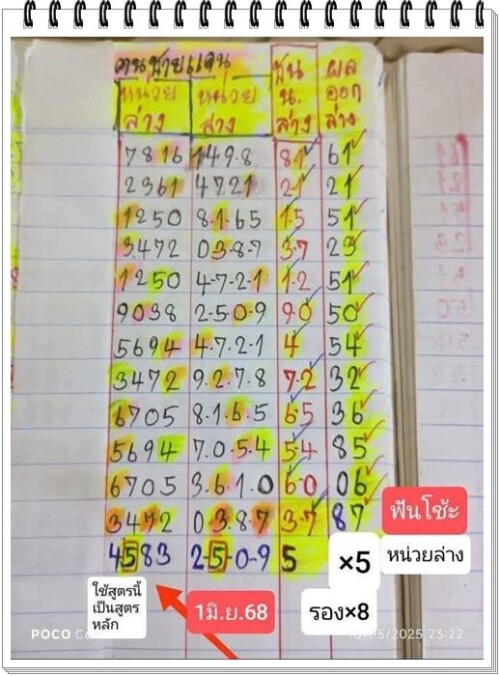 คนชายแดน
หน่วย ล่าง
หน่วย ล่าง
ชน น. ล่าง
ผล ออก ล่าง
7816 149.8 81 61
2361 4721 21 21
1250 8.1.65 1.5 51
3472 03.8.7 3.7 23
1250 4-7-2-1 1-2 51
9038 2-50.9 90 50
5694 4.7.2.1 4 54
3472 9.2.7.8 7.2 32
6705 8.1.6.5 6.5 36
5694 7.0.5.4 5.4 85
6705 3.6.1.0 6-0 06
3472 0.3.8.7 3.7 87
ฟันโช้ะ
4583 2-5-0-9 5 ×5
หน่วยล่าง
ใช้สูตรนี้
เป็นสูตร
หลัก
1มิ.ย.68
รอง×8
POCO
/05/2025 23:22